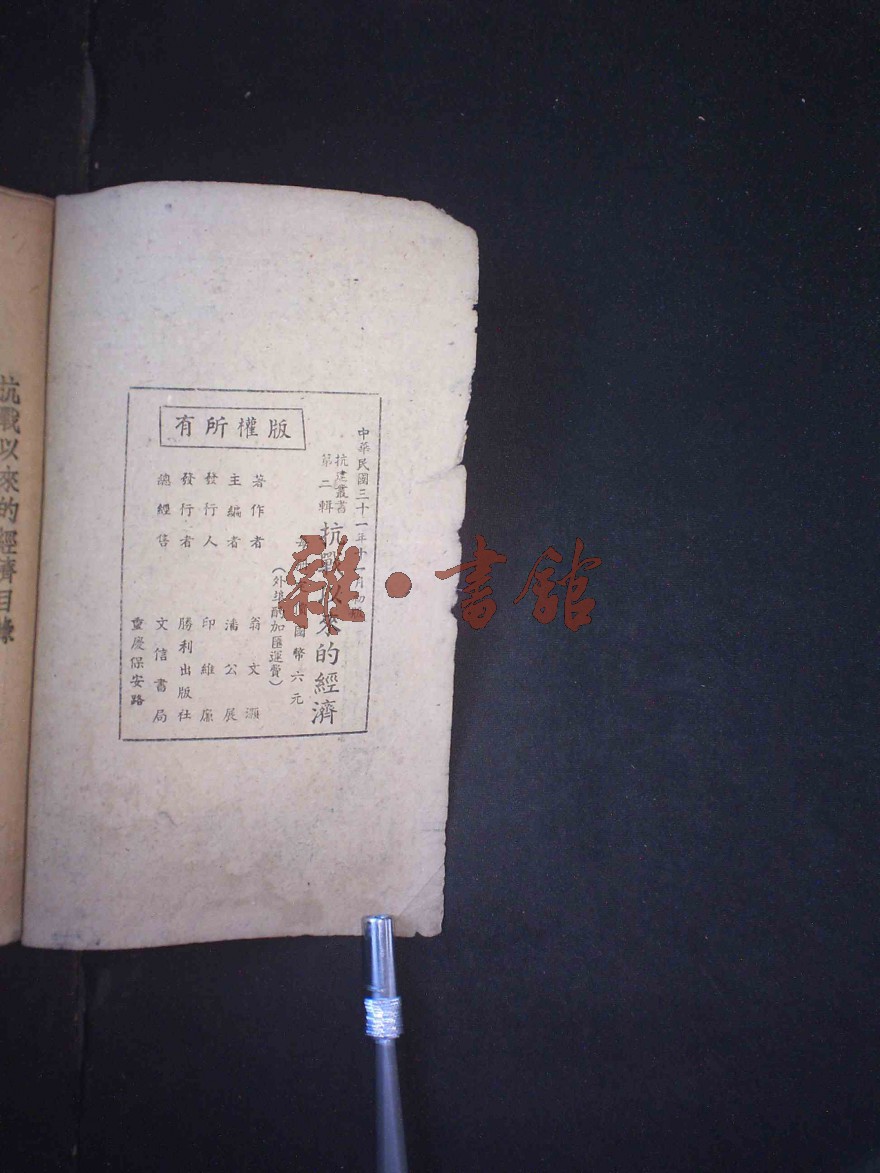 版權所有
中華民國三十一年十一月初
抗建叢書
第二輯
抗戰以來的經濟
國幣六元
(外埠酌加匯運費)
著作者 翁文灝
主編者 潘公展
發行人 印維廉
發行者 勝利出版社
總經售 文信書局
重慶保安路
抗戰以來的經濟目錄
雜·書館